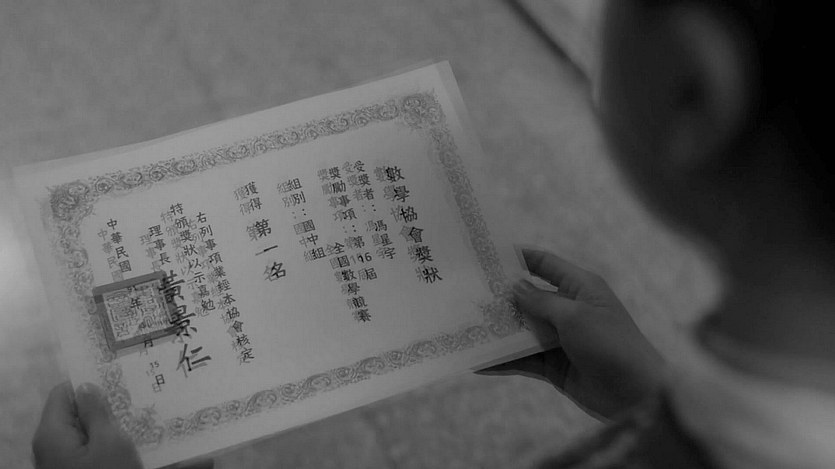 數學協會獎狀
受獎者：馮星宇
獎勵事項：第16屆
全國數學競賽
組別：國中組
獲得 第一名
右列事項業經本協會核定
特頒獎狀以示嘉勉
理事長 黃景仁
中華民國 年 月 15日